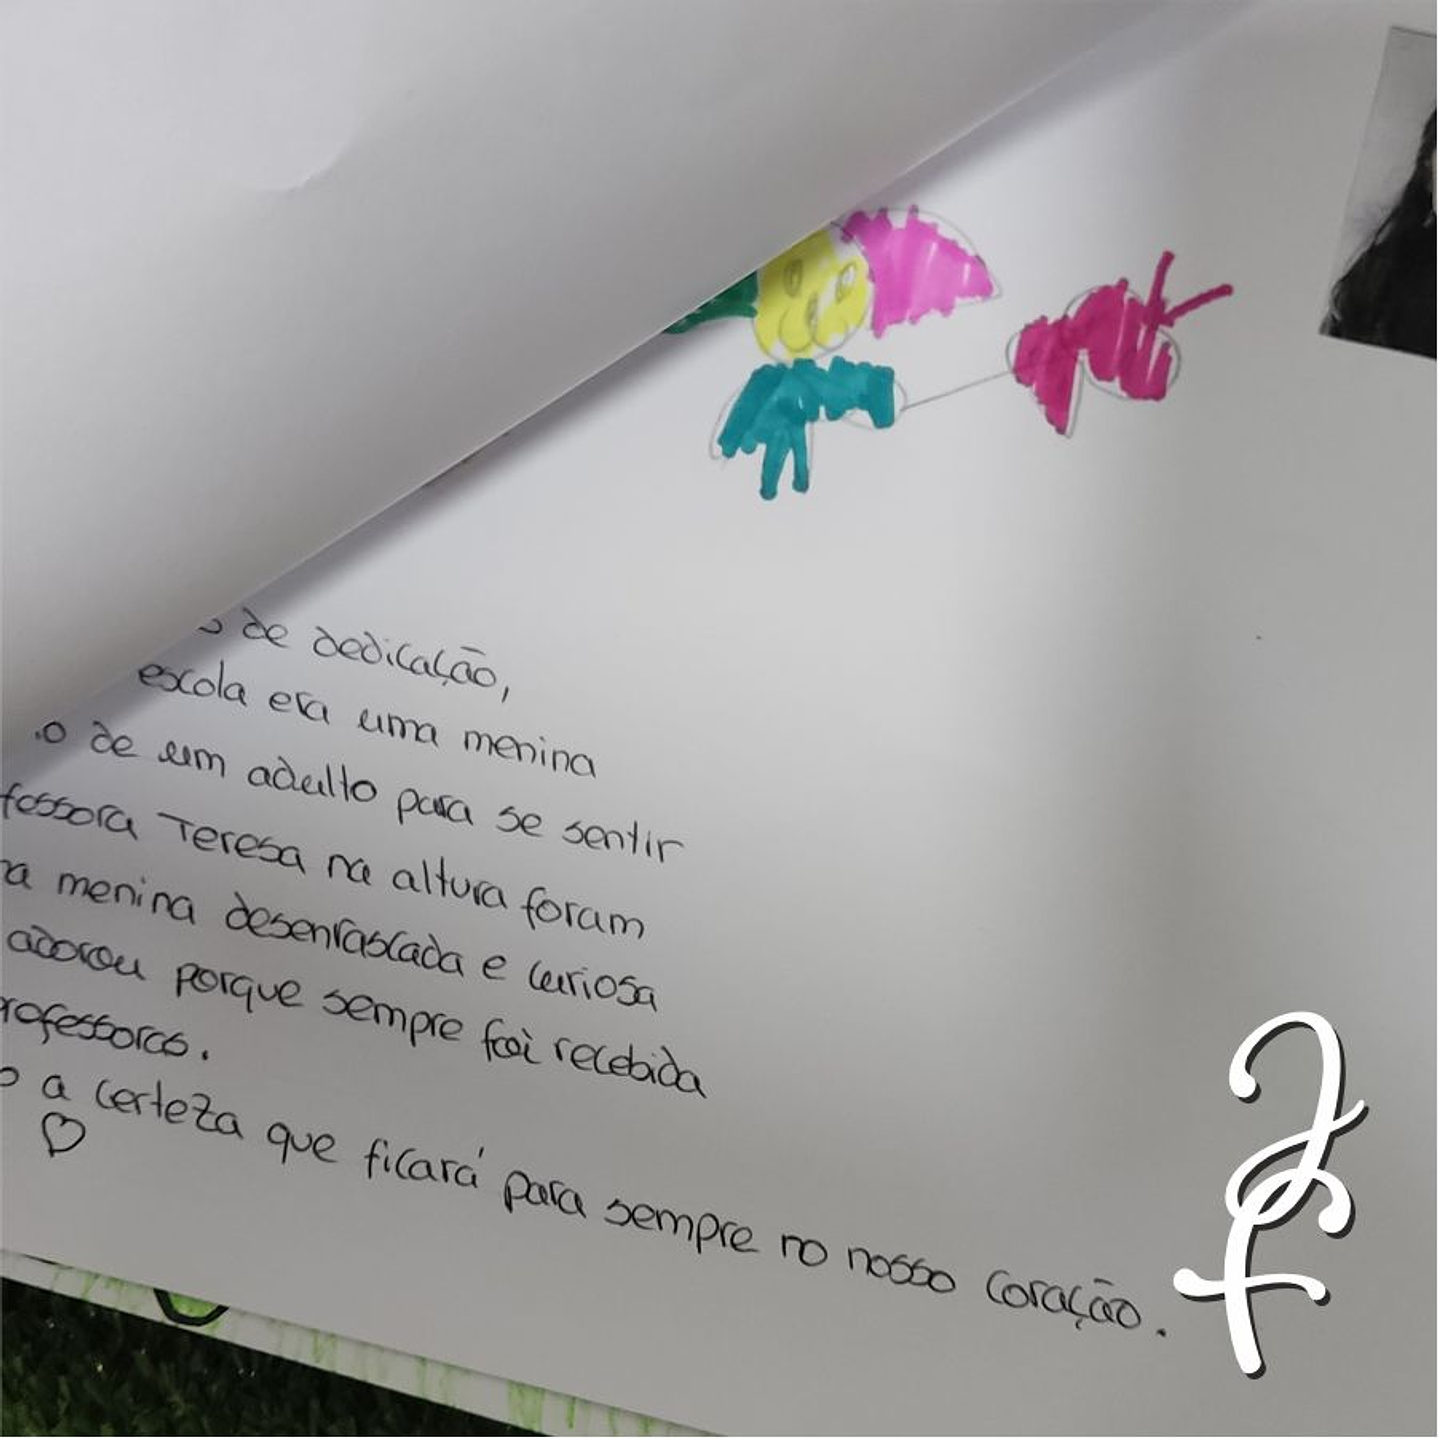 de dedicação,
escola era uma menina
de um adulto para se sentir
fessora Teresa na altura foram
menina desenrascada e curiosa
adorou porque sempre foi recebida
rofessoras.
a certeza que ficará para sempre no nosso coração.